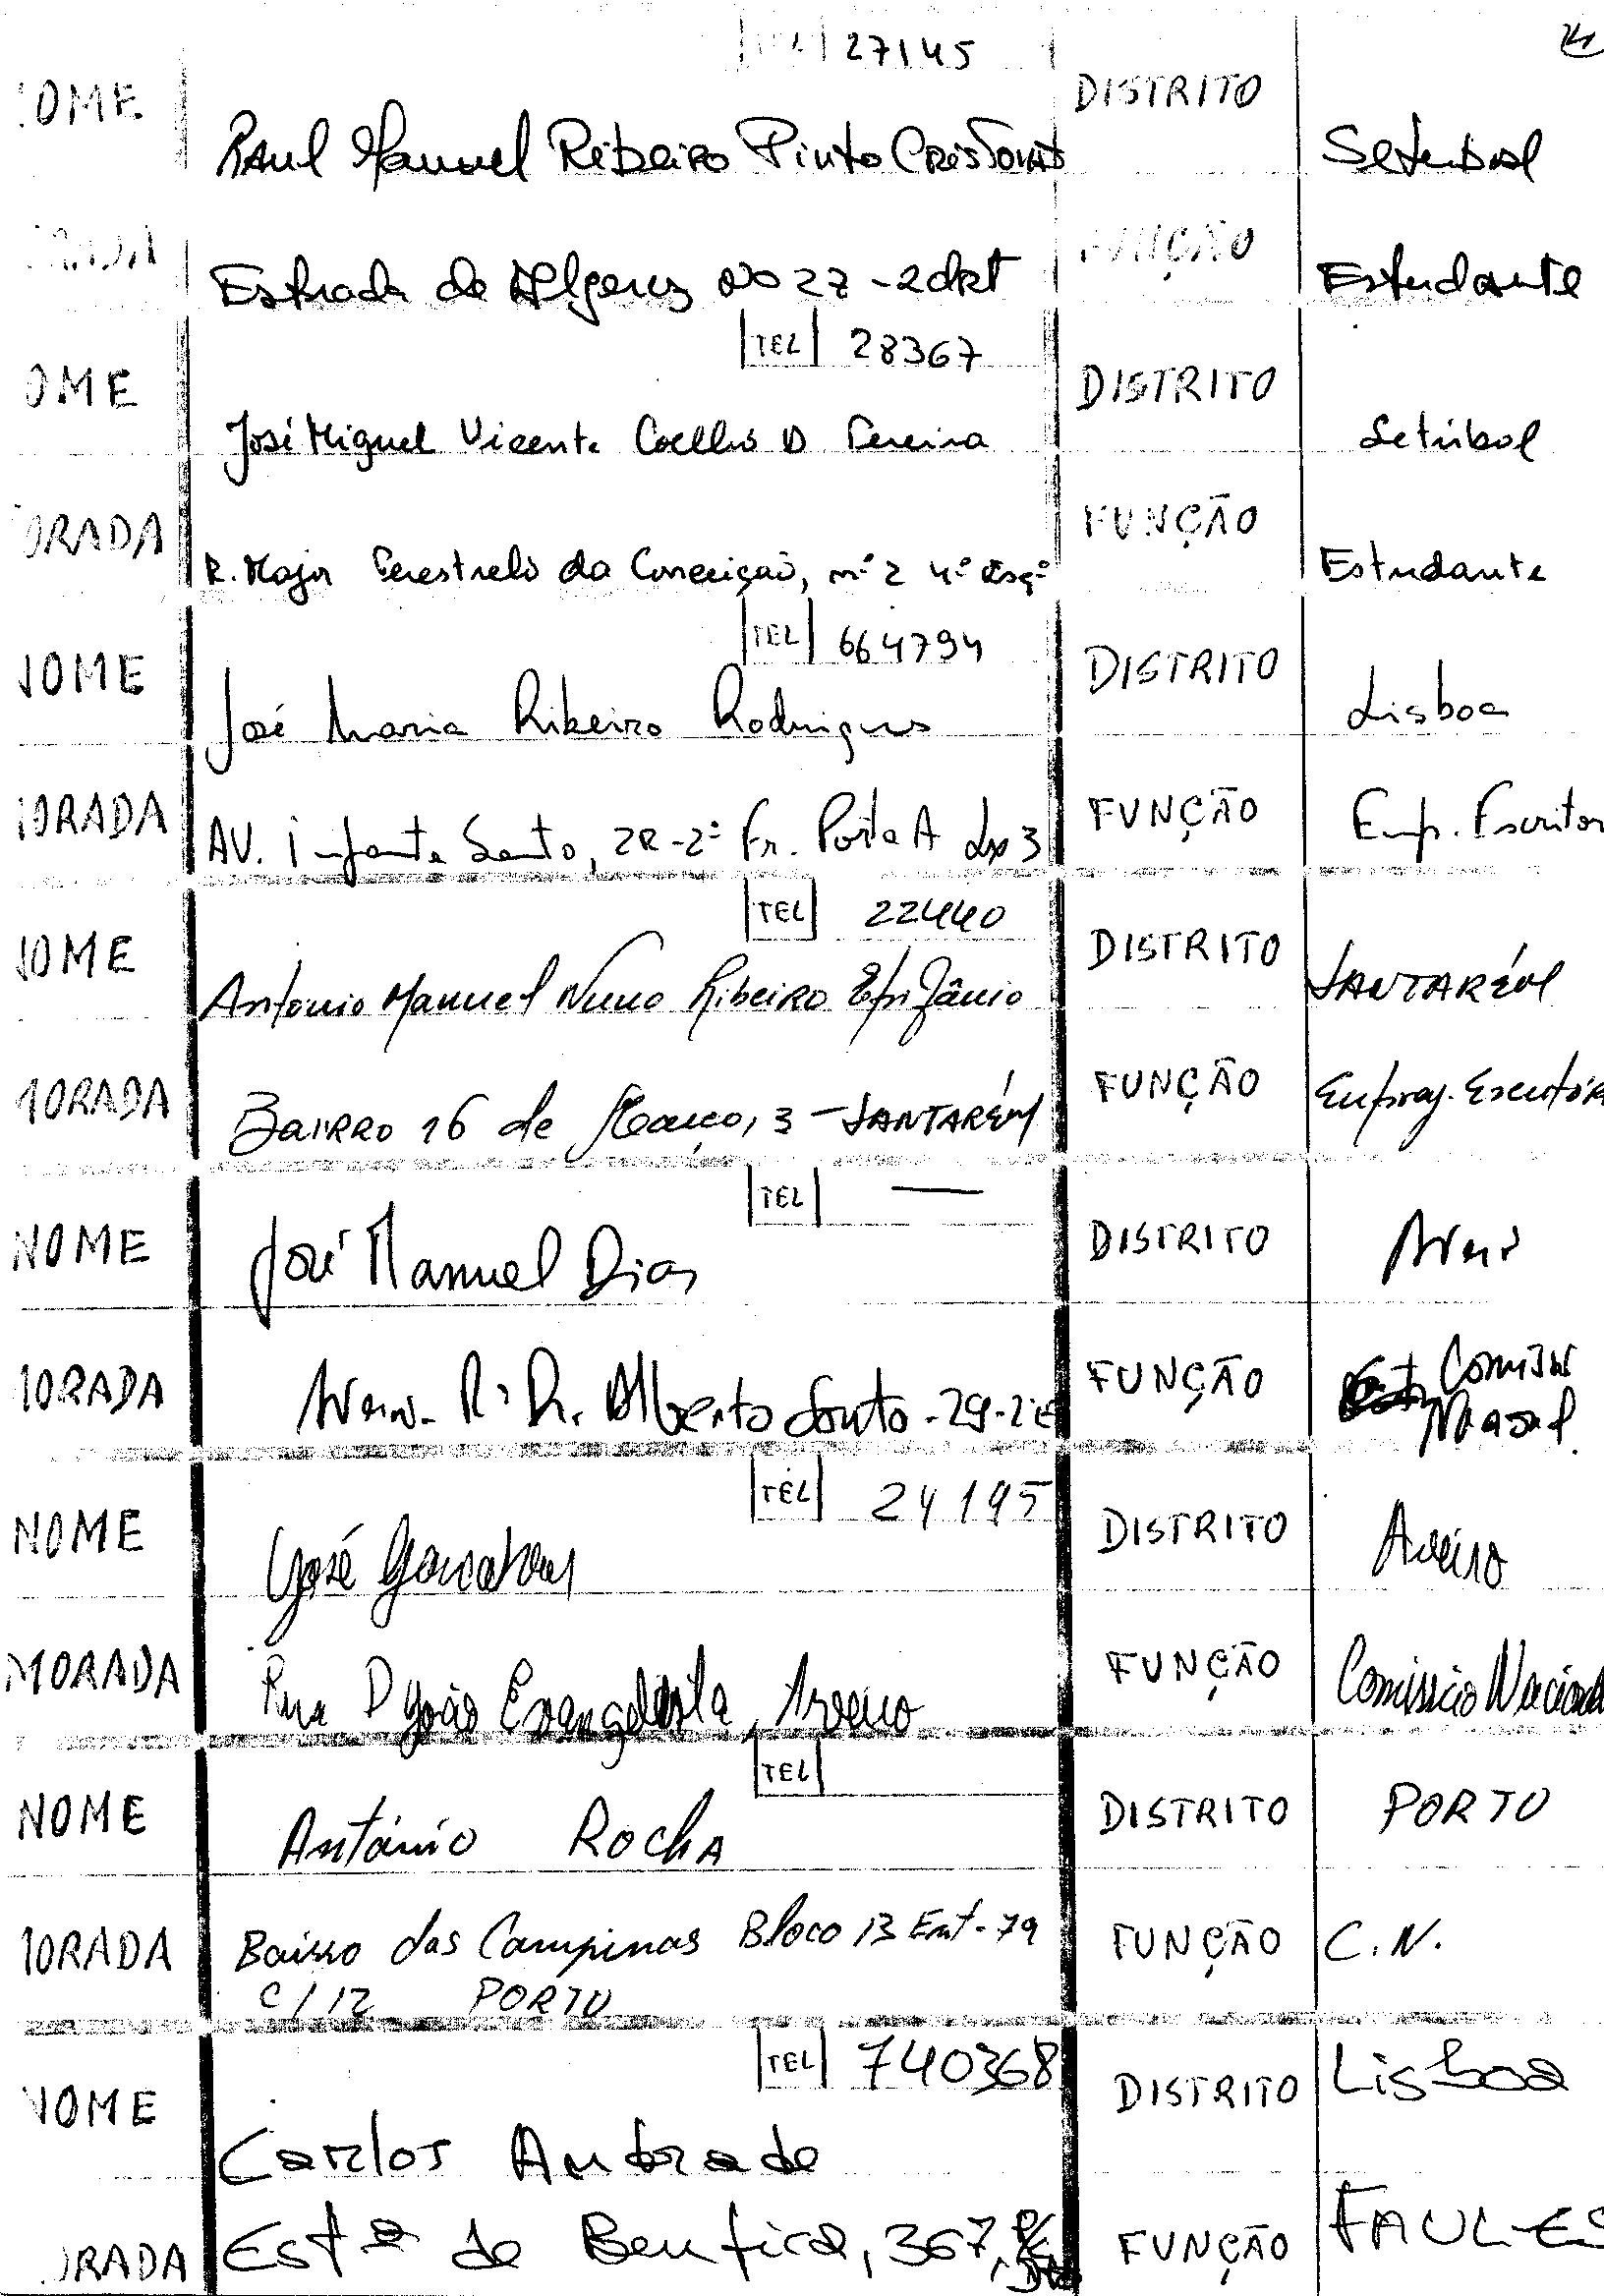 TEL 27145
24
NOME Raul Manuel Ribeiro Pinto Cristovão DISTRITO Setubal
MORADA Estrada de Algeruz No 27 - 2 dkt FUNÇÃO Estudante
TEL 28367
NOME José Miguel Vicente Coelho D Pereira DISTRITO Setúbal
MORADA R. Major Perestrelo da Conceição, nº 2 4º Esqº FUNÇÃO Estudante
TEL 664794
NOME José Maria Ribeiro Rodrigues DISTRITO Lisboa
MORADA AV. Infante Santo, 2R-2º Fr. Porta A Lx 3 FUNÇÃO Emp. Escritor
TEL 22440
NOME António Manuel Nuno Ribeiro Epifânio DISTRITO SANTARÉM
MORADA BAIRRO 16 de Março, 3 - SANTARÉM FUNÇÃO Empreg. Escritór
TEL —
NOME José Manuel Dias DISTRITO Aveiro
MORADA Aveiro - R. Dr. Alberto Souto - 29-2º E FUNÇÃO
TEL 24195
NOME José Gonçalves DISTRITO Aveiro
MORADA Rua D João Evangelista, Aveiro FUNÇÃO Comissão Nacional
TEL
NOME António Rocha DISTRITO PORTO
MORADA Bairro das Campinas Bloco 13 Ent - 79 FUNÇÃO C.N.
C/12 PORTO
TEL 740368
NOME Carlos Andrade DISTRITO Lisboa
MORADA Estª de Benfica, 367, FUNÇÃO FAUL-ES